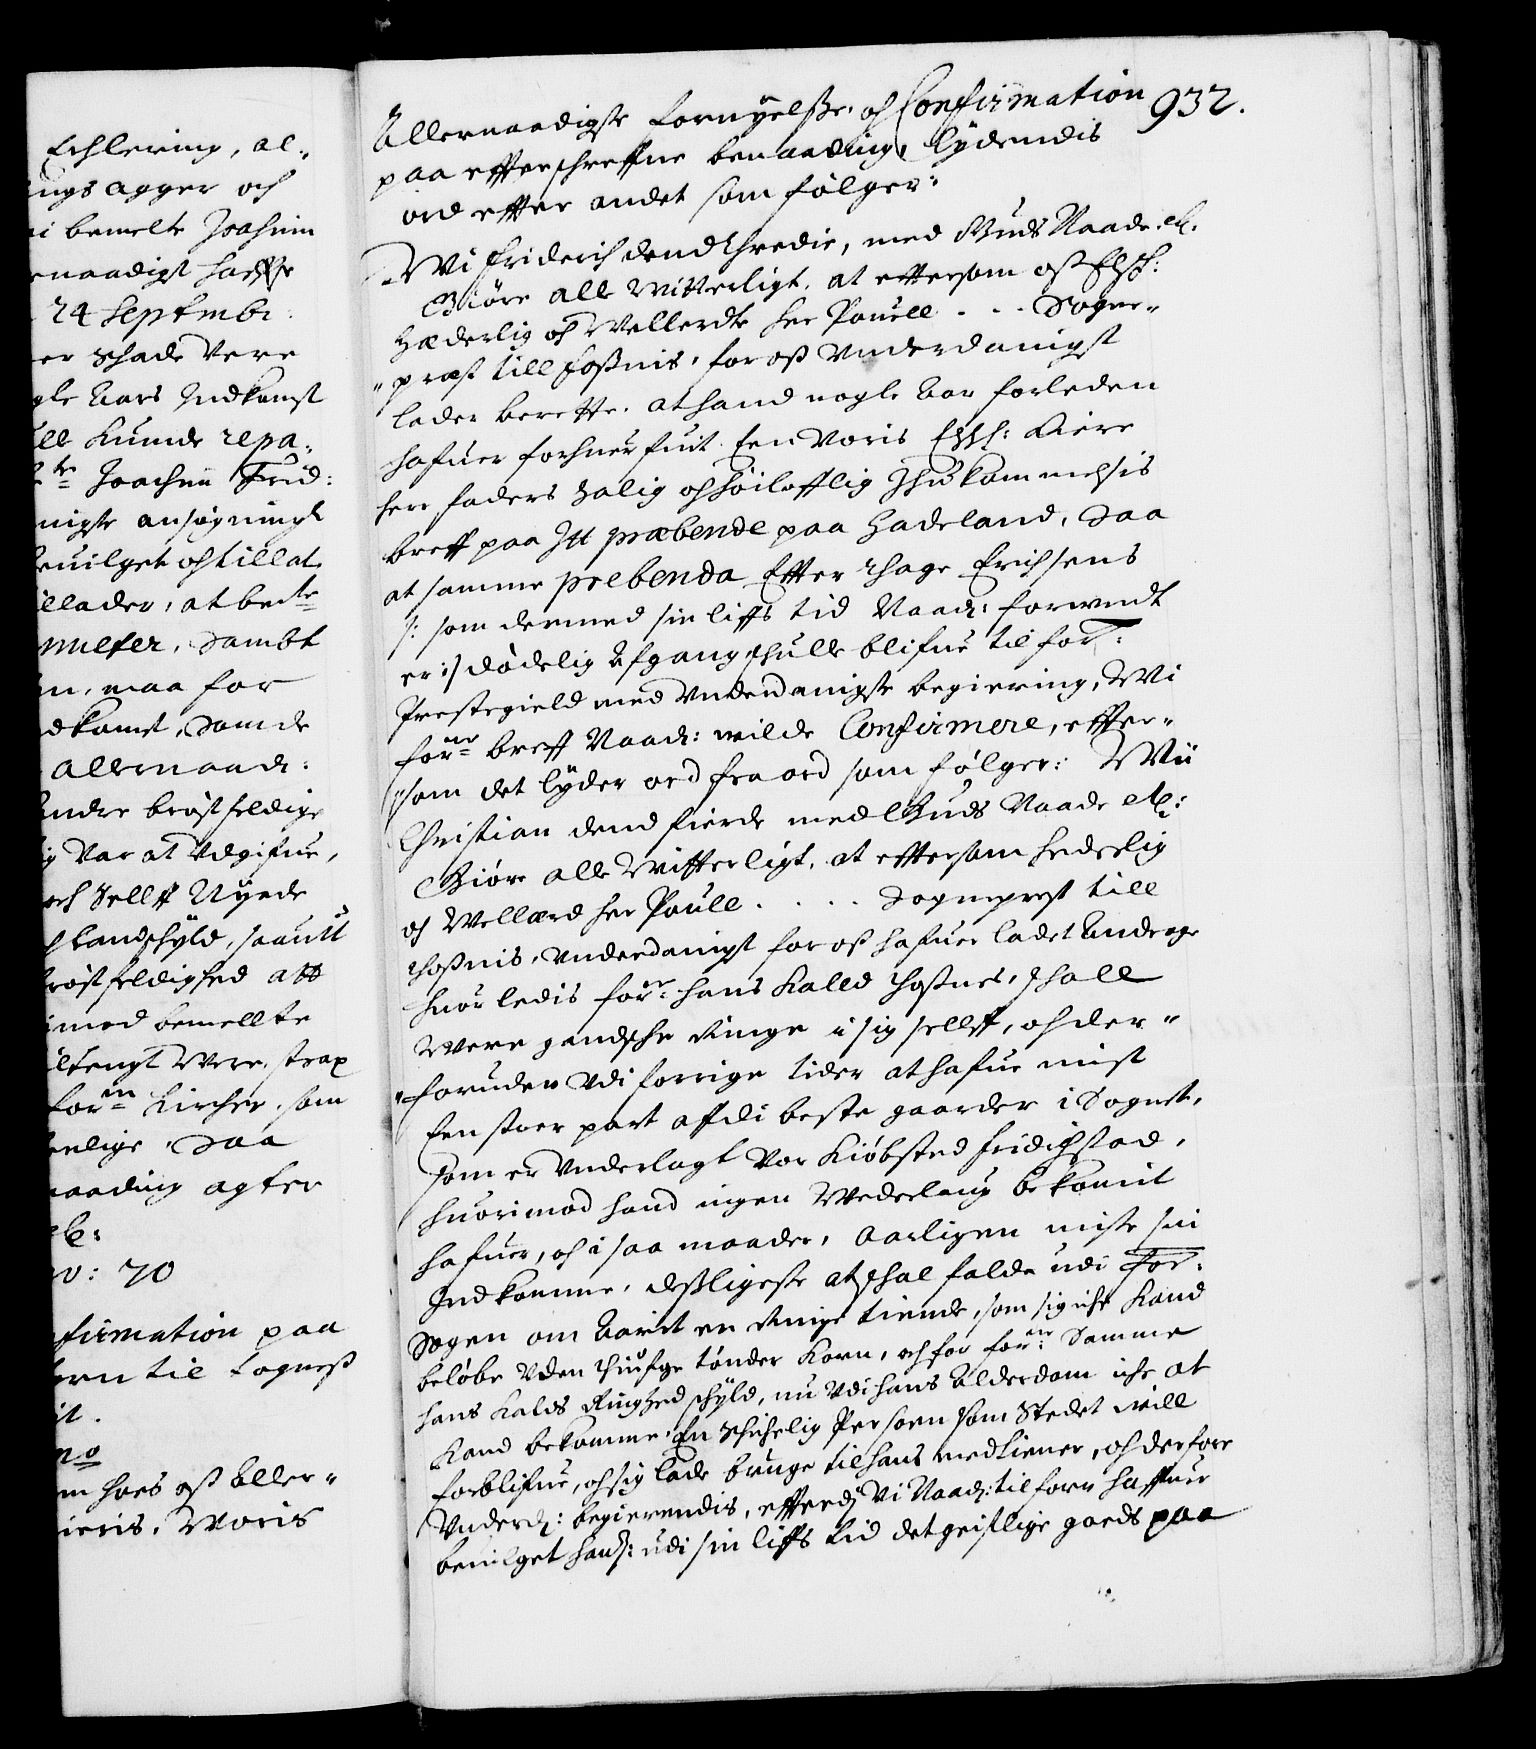 Echlering, al-
ngs agger och
i bemelte Joachim
rnaadigst haffe
24 Septmbr.
er schade vere
gle Aars Indkomst
ll kunde repa-
te Joachim Frid:
nigste ansøgning
euilget och tillat
illader, at bete
multer, sambt
n, maa for
dkomst, som de
allernaad:
ndre brøstfeldige
g var at udgifue,
och self Nyede
landschyld, sauitt
røstfeldighed att
imod bemellte
iltengt were, strax
forne Kircher, som
nlige, Saa
naading agter
etc:
o: 70
nfirmation paa
orn til Sogness
it.
no
m hoes oss Aller-
ieris, Woris
932.
Allernaadigste fornyelsse, och Confirmation
paa effterschreffne benaading, lydendis
ord effter andet som følger:
Wi Friderich dend thredie, med Guds Naade etc.
Giøre alle witterligt, at eftersom oss Elsch:
Hæderlig och Wellerdte her Pouell - - - Sogne-
-præst till Fossnis, for oss underdanigst
lader berette, at hand nogle Aar forleden
hafuer forhuerfuit Een Voris Elsch: Kiere
her faders salig och høiloflig Ihukommelsis
breff paa Itt præbende paa Hadeland, saa
at samme prebenda Efter Thage Erichsens
/: som dermed sin liffs tid Naad: forundt
er :/ dødelig afgang schulle blifue til for:
Prestegield med underdanigste begiering, Wi
forne breff Naad: wilde Confirmere, effter-
som det lyder ord fra ord som følger: Wii
Christian dend fierde med Guds Naade etc:
Giøre alle Witterligt, at effttersom hederlig
och Wellærd her Pouell - - - - Sogneprest till
Thossnis, underdanigst for oss hafuer ladet Andrage
huorledis forne hans Kalld Thossnes, schall
were gandsche Ringe i sig sellff, och der-
-foruden udi forrige tider at hafue mist
Een stoer part aff di beste gaarder i Sognet,
som er underlagt Vor Kiøbsted Fridichstad,
huorimod hand ingen Wederlaug bekomit
hafuer, och i saa maader, Aarligen miste sin
Indkomme, desligeste at schal falde udi for:
Sogen om Aarit en Ringe tiende, som sig iche kand
beløbe uden thiufge tønder Korn, och for forne: Samme
hans Kalds Ringhed schyld, nu udi hans Alderdom iche at
kand bekomme En Schichelig Persoen som Stedet will
forblifue, och sig lade bruge til hans medtiener, och derfore
Underd: begierendis, efterdj Vi Naad: tilforn haffuer
beuilget ham: udi sin liffs tid det geistlige goeds paa